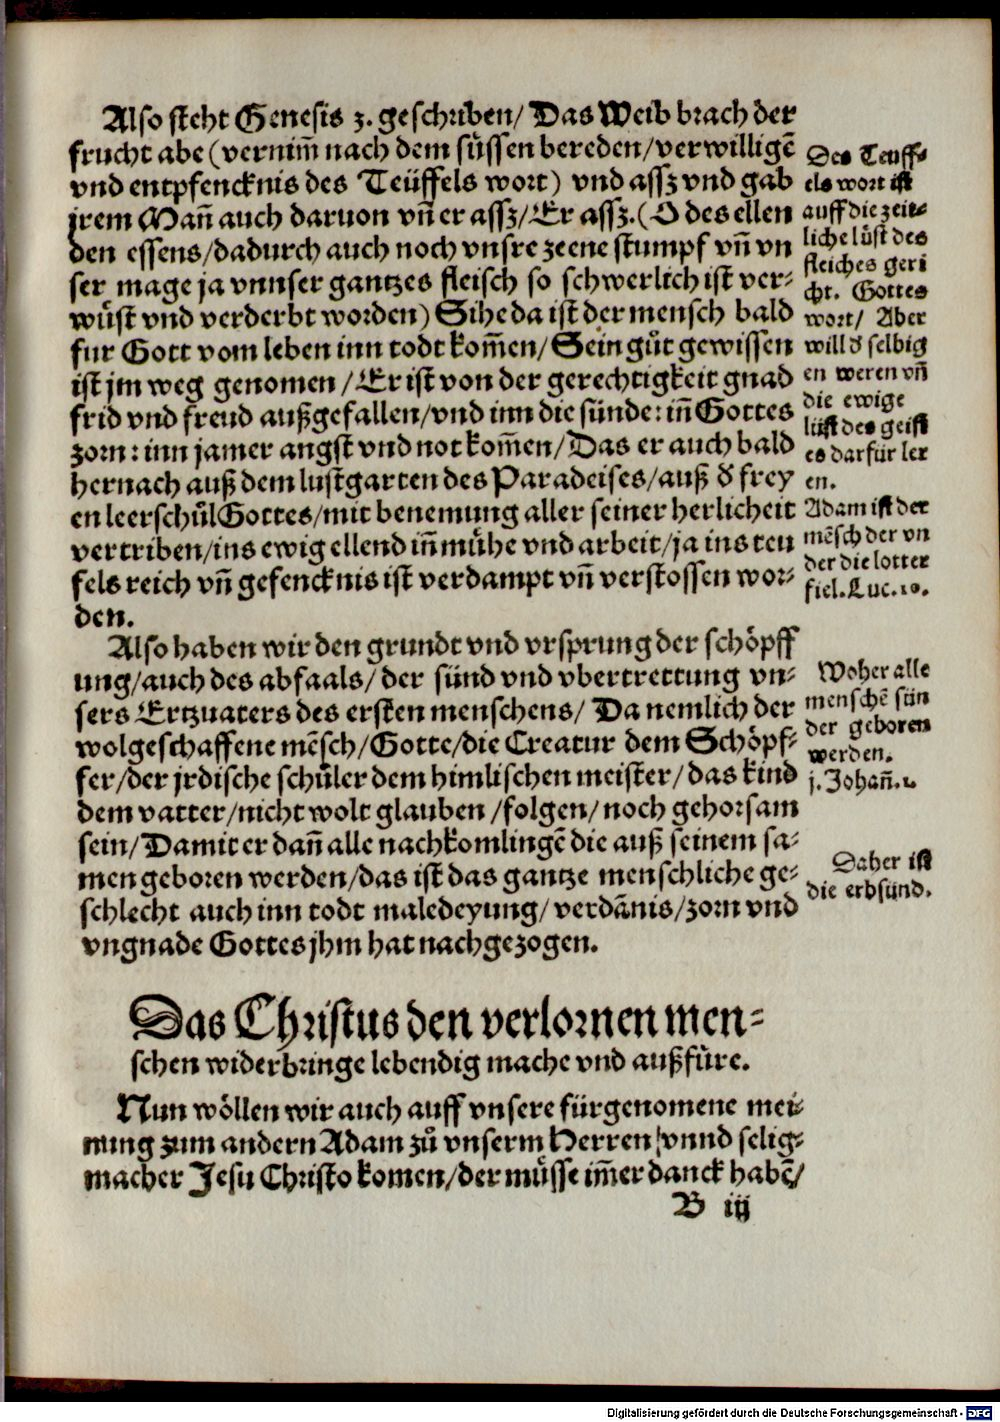 Also steht Genesis 3. geschriben/ Das Weib brach der
frucht abe (vernim̄ nach dem süssen bereden/verwilligē
vnd entpfencknis des Teüffels wort) vnd assz vnd gab
jrem Man̄ auch daruon vn̄ er assz/ Er assz. (O des ellen
den essens/dadurch auch noch vnsre zeene stumpf vn̄ vn
ser mage ja vnnser gantzes fleisch so schwerlich ist ver⸗
wůst vnd verderbt worden) Sihe da ist der mensch bald
fur Gott vom leben inn todt kom̄en/ Sein gůt gewissen
ist jm weg genomen /Er ist von der gerechtigkeit gnad
frid vnd freud außgefallen/vnd inn die sünde: in̄ Gottes
zorn: inn jamer angst vnd not kom̄en/ Das er auch bald
hernach auß dem lustgarten des Paradeises/auß d̄ frey
en leerschůl Gottes/mit benemung aller seiner herlicheit
vertriben/ins ewig ellend in̄ mühe vnd arbeit/ja ins teu
fels reich vn̄ gefencknis ist verdampt vn̄ verstossen wor⸗
den.
Also haben wir den grundt vnd vrsprung der schöpff
ung/auch des abfaals/ der sünd vnd vbertrettung vn⸗
sers Ertzuaters des ersten menschens/ Da nemlich der
wolgeschaffene mēsch/Gotte/die Creatur dem Schöpf⸗
fer/der jrdische schůler dem himlischen meister/das kind
dem vatter/nicht wolt glauben /folgen/ noch gehorsam
sein/Damit er dan̄ alle nachkomlingē die auß seinem sa⸗
men geboren werden/das ist das gantze menschliche ge⸗
schlecht auch inn todt maledeyung/ verdānis/zorn vnd
vngnade Gottes jhm hat nachgezogen.
Des Teuff⸗
els wort ist
auff die zeit⸗
liche lüst des
fleiches geri
cht. Gottes
wort/ Aber
will d̄ selbig
en weren vn̄
die ewige
lüst des geist
es darfür ler
en.
Adam ist der
mēsch der vn
der die lotter
fiel. Luc. 10.
Woher alle
menschē sün
der geboren
werden.
j. Johan̄. 1.
Daher ist
die erbsünd.
Das Christus den verlornen men⸗
schen widerbringe lebendig mache vnd außfüre.
Nun wöllen wir auch auff vnsere fürgenomene mei⸗
nung zum andern Adam zů vnserm Herren /vnnd selig⸗
macher Jesu Christo komen/der müsse im̄er danck habē/
B iij
Digitalisierung gefördert durch die Deutsche Forschungsgemeinschaft - DFG